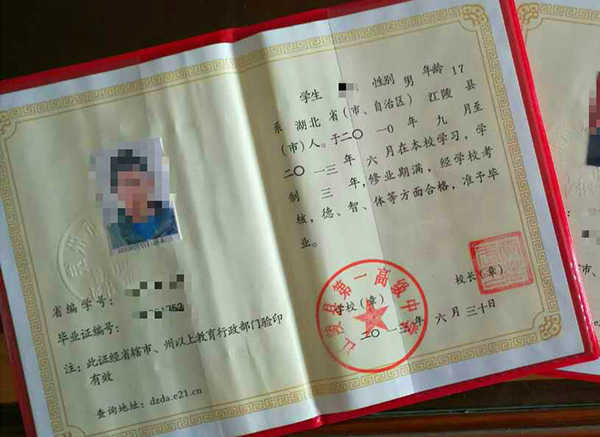 省编学号:
毕业证编号: 752
注: 此证经省辖市、州以上教育行政部门验印
有效
查询地址: dzda.e21.cn
学生 性别 男 年龄 17
系 湖北 省(市、自治区) 江陵 县
(市)人。于二〇一〇年 九 月至
二〇一三年 六 月在本校学习, 学
制 三 年, 修业期满, 经学校考
核, 德、智、体等方面合格, 准予毕
业。
学校(章)
校长(章)
江陵县第一高级中学
二〇一三年 六 月 三十日